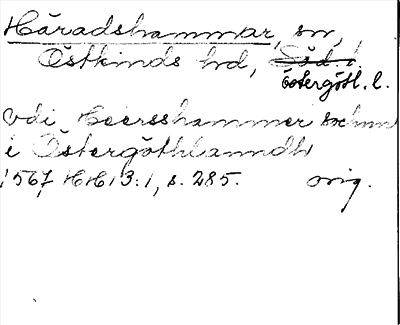 Häradshammar, sn,
Östkinds hd, Söd. l.
Östergötl. l.
vdi Heersshammer sochnn
i Östergöthlanndh
1567 HH 13:1, s. 285. orig.